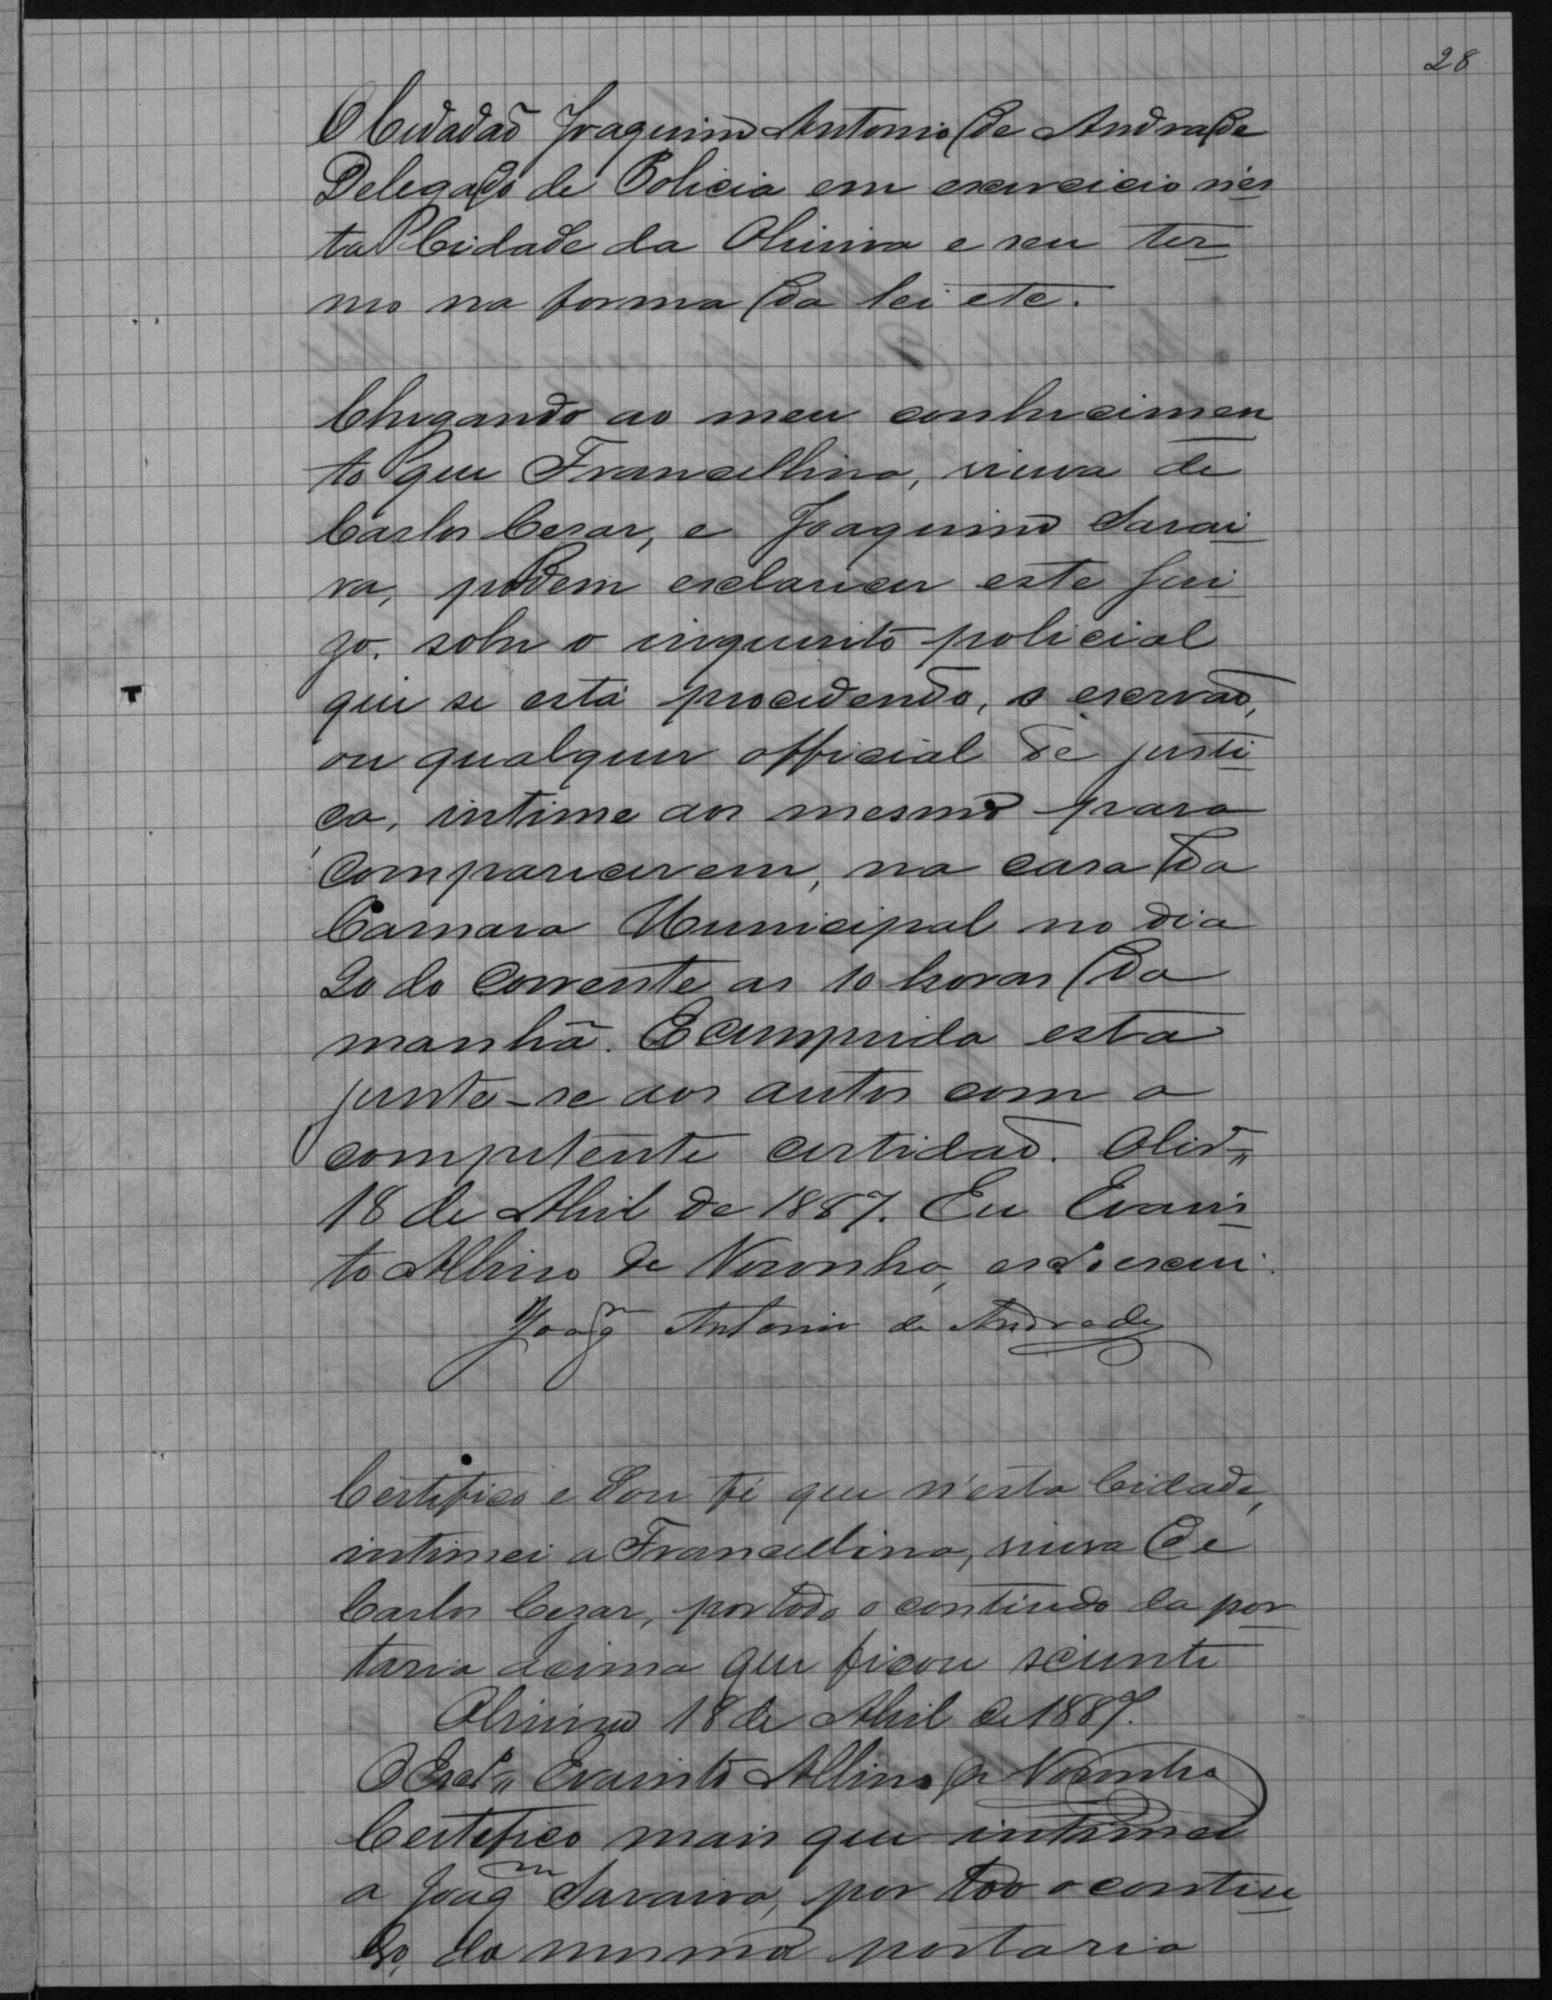 28
O Cidadão Joaquim Antonio de Andrade
Delegado de Policia em exercicio n'es
ta Cidade da Oliveira e seu ter
mo na forma da lei etc.
Chegando ao meu conhecimen
to que Francellina, viuva de
Carlos Cezar, e Joaquim Sarai
va, podem esclarecer este jui
zo, sobre o inquerito policial
que se está procedendo, o escrvão,
ou qualquer official de justi
ça, intime aos mesmos para
comparecerem, na casa da
Camara Municipal no dia
20 do corrente as 10 horas da
manhã. E cumprida esta
junte-se aos autos com a
competente certidão. Olivrª
18 de Abril de 1887. Eu Evaris
to Albino de Noronha, escrvº escrevi.
Joaqm Antonio de Andrade
Certifico e dou fé que n'esta Cidade,
intimei a Francellina, viuva de
Carlos Cezar, por todo o contiudo da por
taria acima que ficou sciente
Oliveira 18 de Abril de 1887.
O Escrvº Evaristo Albino de Noronha
Certifico mais que intimei
a Joaqm Saraiva, por todo o contiu
do, da mesma portaria